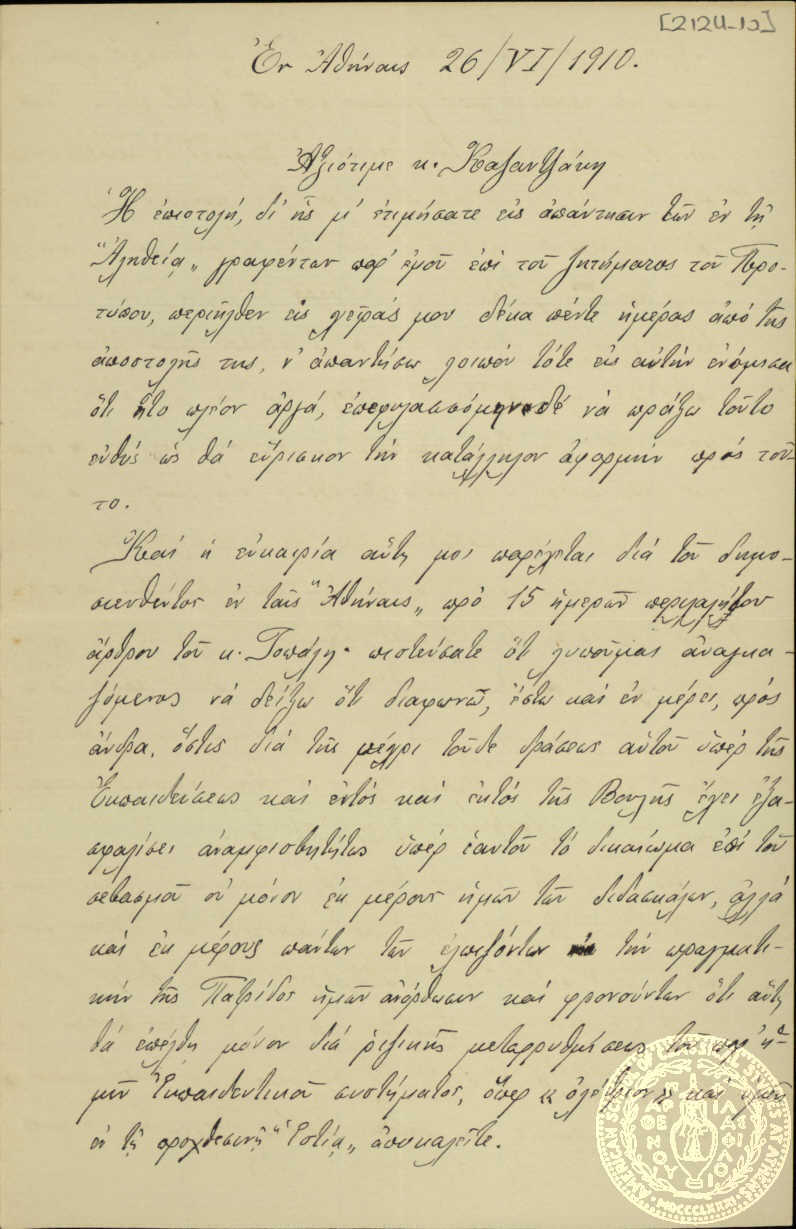 [2124-10]
Ἐν Ἀθήναις 26/VI/1910.
Ἀξιότιμε κ. Καζαντζάκη
Ἡ ἐπιστολή, δι' ἧς μ' ἐτιμήσατε εἰς ἀπάντησιν τῶν ἐν τῇ
"Ἀληθείᾳ" γραφέντων παρ' ἐμοῦ ἐπί τοῦ ζητήματος τοῦ Προ-
τύπου, περιῆλθεν εἰς χεῖράς μου δέκα πέντε ἡμέρας ἀπό τῆς
ἀποστολῆς της, ν' ἀπαντήσω λοιπόν τότε εἰς αὐτήν ἐνόμισα
ὅτι ἦτο πλέον ἀργά, ἐπεφυλασσόμην δέ νά πράξω τοῦτο
εὐθύς ὡς θά εὕρισκον τήν κατάλληλον ἀφορμήν πρός τοῦ-
το.
Καί ἡ εὐκαιρία αὕτη μοι παρέχεται διά τοῦ δημο-
σιευθέντος ἐν ταῖς "Ἀθήναις" πρό 15 ἡμερῶν περιλαλήτου
ἄρθρου τοῦ κ. Τοπάλη· πιστεύσατε ὅτι λυποῦμαι ἀναγκα-
ζόμενος νά δείξω ὅτι διαφωνῶ, ἔστω καί ἐν μέρει, πρός
ἄνδρα, ὅστις διά τῆς μέχρι τοῦδε δράσεως αὐτοῦ ὑπέρ τῆς
Ἐκπαιδεύσεως καί ἐντός καί ἐκτός τῆς Βουλῆς ἔχει ἐξα-
σφαλίσει ἀναμφισβητήτως ὑπέρ ἑαυτοῦ τό δικαίωμα ἐπί τοῦ
σεβασμοῦ οὐ μόνον ἐκ μέρους ἡμῶν τῶν διδασκάλων, ἀλλά
καί ἐκ μέρους πάντων τῶν ἐλπιζόντων τήν πραγματι-
κήν τῆς Πατρίδος ἡμῶν ἀνόρθωσιν καί φρονούντων ὅτι αὕτη
θά ἐπέλθῃ μόνον διά ῥιζικῆς μεταρρυθμίσεως τοῦ παρ' ἡ-
μῖν Ἐκπαιδευτικοῦ συστήματος, ὅπερ "ὀλέθριον" καί ὑμεῖς
ἐν τῇ προχθεσινῇ "Ἑστίᾳ" ἀποκαλεῖτε.
AMERICAN SCHOOL OF CLASSICAL STUDIES AT ATHENS
ΠΑΡΘΕΝΟΥ ΦΙΛΑΣ
MDCCCLXXXI